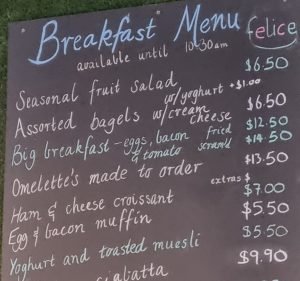 Breakfast Menu
felice
available until 10:30am
Seasonal fruit salad $6.50
w/yoghurt +$1.00
Assorted bagels w/cream cheese $6.50
Big breakfast - eggs, bacon & tomato fried $12.50
scram'd $14.50
Omelette's made to order $13.50
extras $
Ham & cheese croissant $7.00
Egg & bacon muffin $5.50
Yoghurt and toasted muesli $5.50
$9.90